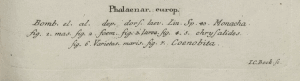 Phalaenar. europ.
Bomb. el. al. dep. dors. laev. Lin. Sp. 43. Monacha
fig. 1. mas. fig. 2. fem. fig. 3. larva fig. 4. 5. chrysalides.
fig. 6. Varietas maris. fig. 7. Coenobita.
I.C. Bock sc.